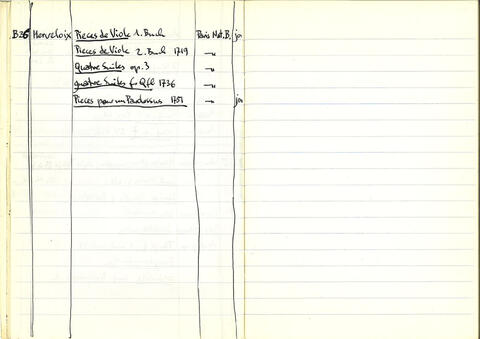 B26 Herveloix Pieces de Viole 1. Buch Paris Nat. B. ja
Pieces de Viole 2. Buch 1719 "
Quatre Suites op. 3 "
quatre Suites f. Qfl 1736 "
Pieces pour un Pardessus 1751 " ja